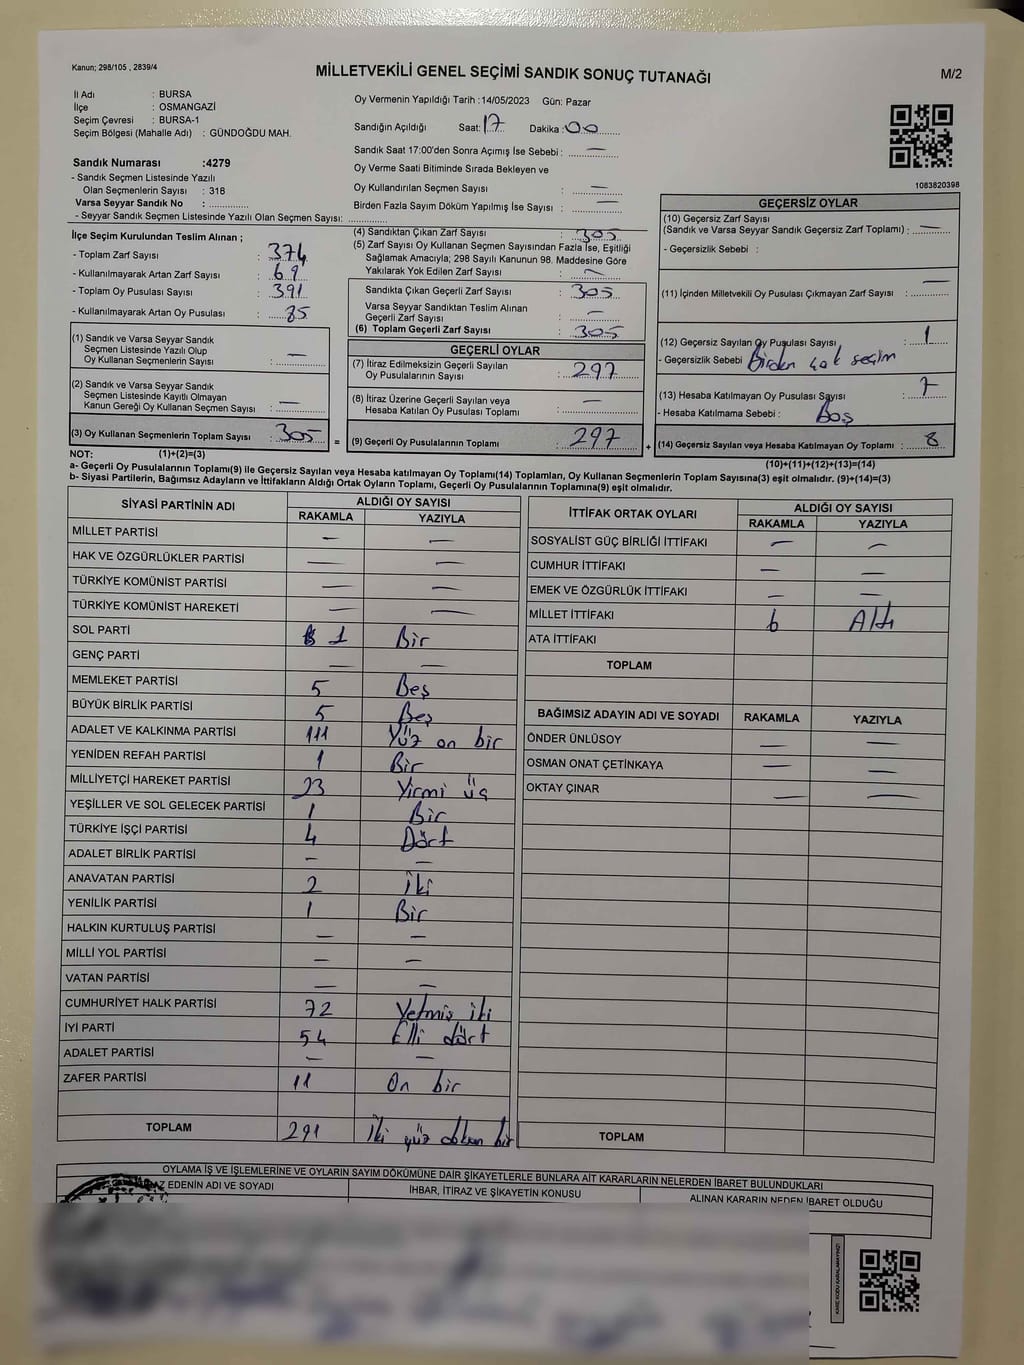 Kanun; 298/105 , 2839/4
MİLLETVEKİLİ GENEL SEÇİMİ SANDIK SONUÇ TUTANAĞI
M/2
İl Adı : BURSA
İlçe : OSMANGAZİ
Seçim Çevresi : BURSA-1
Seçim Bölgesi (Mahalle Adı) : GÜNDOĞDU MAH.
Sandık Numarası :4279
- Sandık Seçmen Listesinde Yazılı
Olan Seçmenlerin Sayısı : 318
Varsa Seyyar Sandık No :
- Seyyar Sandık Seçmen Listesinde Yazılı Olan Seçmen Sayısı:
Oy Vermenin Yapıldığı Tarih :14/05/2023 Gün: Pazar
Sandığın Açıldığı Saat: 17 Dakika : 00
Sandık Saat 17:00'den Sonra Açımış İse Sebebi : —
Oy Verme Saati Bitiminde Sırada Bekleyen ve
Oy Kullandırılan Seçmen Sayısı : —
Birden Fazla Sayım Döküm Yapılmış İse Sayısı : —
1083820398
İlçe Seçim Kurulundan Teslim Alınan ;
- Toplam Zarf Sayısı : 374
- Kullanılmayarak Artan Zarf Sayısı : 69
- Toplam Oy Pusulası Sayısı : 391
- Kullanılmayarak Artan Oy Pusulası : 85
(1) Sandık ve Varsa Seyyar Sandık
Seçmen Listesinde Yazılı Olup
Oy Kullanan Seçmenlerin Sayısı : —
(2) Sandık ve Varsa Seyyar Sandık
Seçmen Listesinde Kayıtlı Olmayan
Kanun Gereği Oy Kullanan Seçmen Sayısı : —
(3) Oy Kullanan Seçmenlerin Toplam Sayısı : 305
(4) Sandıktan Çıkan Zarf Sayısı : 305
(5) Zarf Sayısı Oy Kullanan Seçmen Sayısından Fazla İse, Eşitliği
Sağlamak Amacıyla; 298 Sayılı Kanunun 98. Maddesine Göre
Yakılarak Yok Edilen Zarf Sayısı : —
Sandıkta Çıkan Geçerli Zarf Sayısı : 305
Varsa Seyyar Sandıktan Teslim Alınan
Geçerli Zarf Sayısı : —
(6) Toplam Geçerli Zarf Sayısı : 305
GEÇERLİ OYLAR
(7) İtiraz Edilmeksizin Geçerli Sayılan
Oy Pusulalarının Sayısı : 297
(8) İtiraz Üzerine Geçerli Sayılan veya
Hesaba Katılan Oy Pusulası Toplamı : —
= (9) Geçerli Oy Pusulalarının Toplamı : 297
GEÇERSİZ OYLAR
(10) Geçersiz Zarf Sayısı
(Sandık ve Varsa Seyyar Sandık Geçersiz Zarf Toplamı) : —
- Geçersizlik Sebebi :
(11) İçinden Milletvekili Oy Pusulası Çıkmayan Zarf Sayısı : —
(12) Geçersiz Sayılan Oy Pusulası Sayısı : 1
- Geçersizlik Sebebi Birden çok seçim
(13) Hesaba Katılmayan Oy Pusulası Sayısı : 7
- Hesaba Katılmama Sebebi : Boş
+ (14) Geçersiz Sayılan veya Hesaba Katılmayan Oy Toplamı : 8
NOT: (1)+(2)=(3)
(10)+(11)+(12)+(13)=(14)
a- Geçerli Oy Pusulalarının Toplamı(9) ile Geçersiz Sayılan veya Hesaba katılmayan Oy Toplamı(14) Toplamları, Oy Kullanan Seçmenlerin Toplam Sayısına(3) eşit olmalıdır. (9)+(14)=(3)
b- Siyasi Partilerin, Bağımsız Adayların ve İttifakların Aldığı Ortak Oyların Toplamı, Geçerli Oy Pusulalarının Toplamına(9) eşit olmalıdır.
SİYASİ PARTİNİN ADI ALDIĞI OY SAYISI
RAKAMLA YAZIYLA
MİLLET PARTİSİ — —
HAK VE ÖZGÜRLÜKLER PARTİSİ — —
TÜRKİYE KOMÜNİST PARTİSİ — —
TÜRKİYE KOMÜNİST HAREKETİ — —
SOL PARTİ 1 Bir
GENÇ PARTİ — —
MEMLEKET PARTİSİ 5 Beş
BÜYÜK BİRLİK PARTİSİ 5 Beş
ADALET VE KALKINMA PARTİSİ 111 Yüz on bir
YENİDEN REFAH PARTİSİ 1 Bir
MİLLİYETÇİ HAREKET PARTİSİ 23 Yirmi üç
YEŞİLLER VE SOL GELECEK PARTİSİ 1 Bir
TÜRKİYE İŞÇİ PARTİSİ 4 Dört
ADALET BİRLİK PARTİSİ — —
ANAVATAN PARTİSİ 2 İki
YENİLİK PARTİSİ 1 Bir
HALKIN KURTULUŞ PARTİSİ — —
MİLLİ YOL PARTİSİ — —
VATAN PARTİSİ — —
CUMHURİYET HALK PARTİSİ 72 Yetmiş iki
İYİ PARTİ 54 Elli dört
ADALET PARTİSİ — —
ZAFER PARTİSİ 11 On bir
TOPLAM 291 İki yüz doksan bir
İTTİFAK ORTAK OYLARI ALDIĞI OY SAYISI
RAKAMLA YAZIYLA
SOSYALİST GÜÇ BİRLİĞİ İTTİFAKI — —
CUMHUR İTTİFAKI — —
EMEK VE ÖZGÜRLÜK İTTİFAKI — —
MİLLET İTTİFAKI 6 Altı
ATA İTTİFAKI
TOPLAM
BAĞIMSIZ ADAYIN ADI VE SOYADI RAKAMLA YAZIYLA
ÖNDER ÜNLÜSOY — —
OSMAN ONAT ÇETİNKAYA — —
OKTAY ÇINAR — —
TOPLAM
OYLAMA İŞ VE İŞLEMLERİNE VE OYLARIN SAYIM DÖKÜMÜNE DAİR ŞİKAYETLERLE BUNLARA AİT KARARLARIN NELERDEN İBARET BULUNDUKLARI
EDENİN ADI VE SOYADI İHBAR, İTİRAZ VE ŞİKAYETİN KONUSU ALINAN KARARIN NEDEN İBARET OLDUĞU
KARE KODU KARALAMAYINIZ!